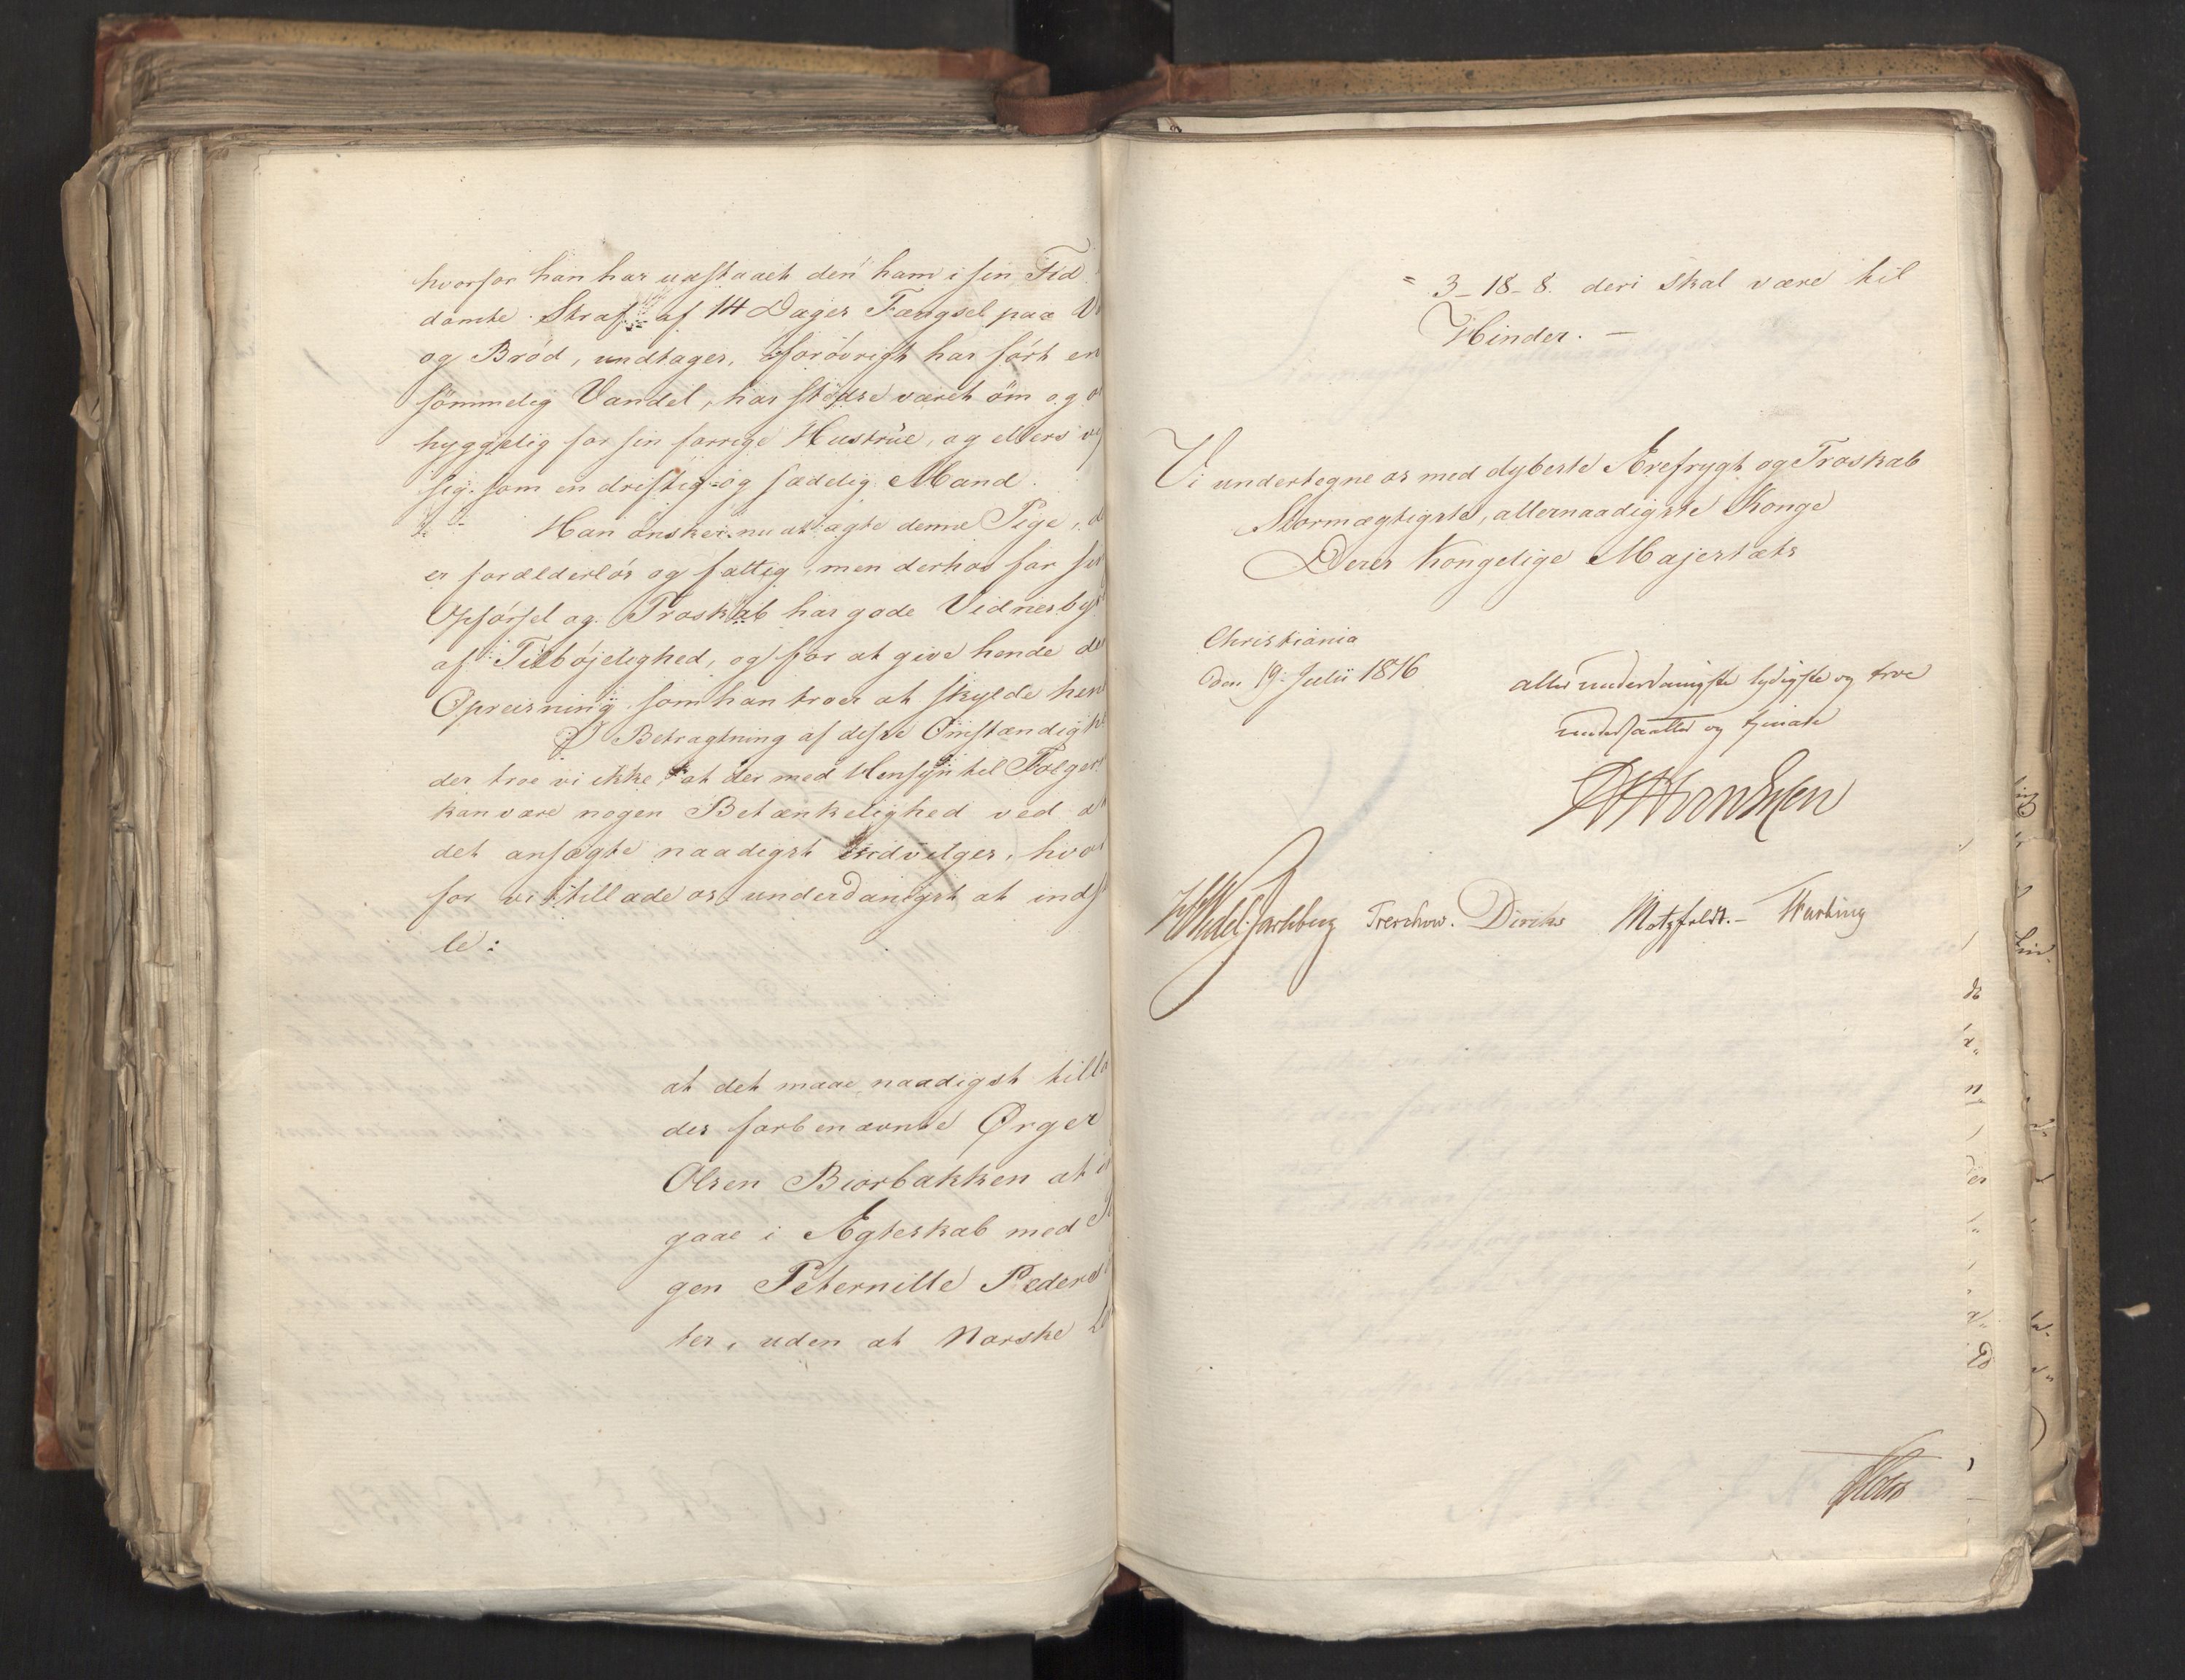 hvorfor han har udstaaet den ham i sin Tid
dømte Straf af 14 Dages Fængsel paa V
og Brød, undtages, forøvrigt har ført en
sømmelig Vandel, har stedse været øm og o
hyggelig for sin forrige Hustrue, og ellers
sig som en driftig og sædelig Mand.
Han ønsker nu at ægte denne Pige, d
er forælderløs og fattig, men derhos for sin
Opførsel og Troskab har gode Vidnesby
af Tilbøjelighed, og for at give hende de
Opreisning som han troer at skylde hen
I Betragtning af disse Omstændighe
der troe vi ikke at der med Hensyn til Følger
kan være nogen Betænkelighed ved a
det ansøgte naadigst indvilges, hvor
for vi tillade os underdanigst at indst
le:
at det maae naadigst tilla
des forbenævnte Ørger
Olsen Biørbakken at in
gaae i Ægteskab med Pi
gen Peternille Peders
ter, uden at Norske Lo
= 3-18-8. deri skal være til
Hinder. —
Vi undertegne os med dybeste Ærefrygt og Troskab
Stormægtigste, allernaadigste Konge
Deres Kongelige Majestæts
Christiania
den 19. Julii 1816
allerunderdanigste lydigste og troe
undersaatter og tjenere
HWedel Jarlsberg Treschow. Diriks Motzfeldt. -